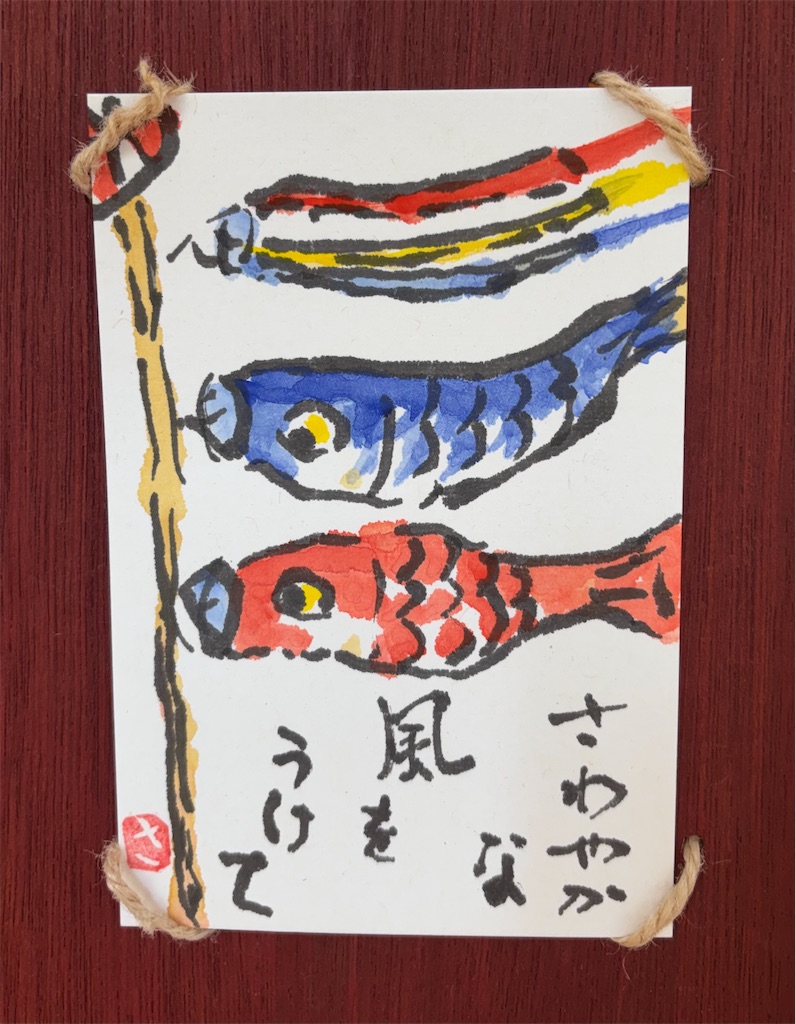 さわやか
な
風を
うけ
て
さ